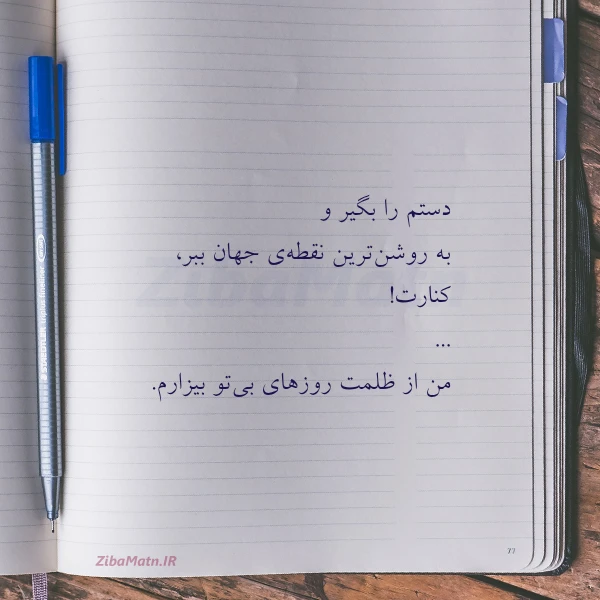 دستم را بگیر و
به روشن‌ترین نقطه‌ی جهان ببر،
کنارت!
...
من از ظلمت روزهای بی‌تو بیزارم.
ZibaMatn.IR